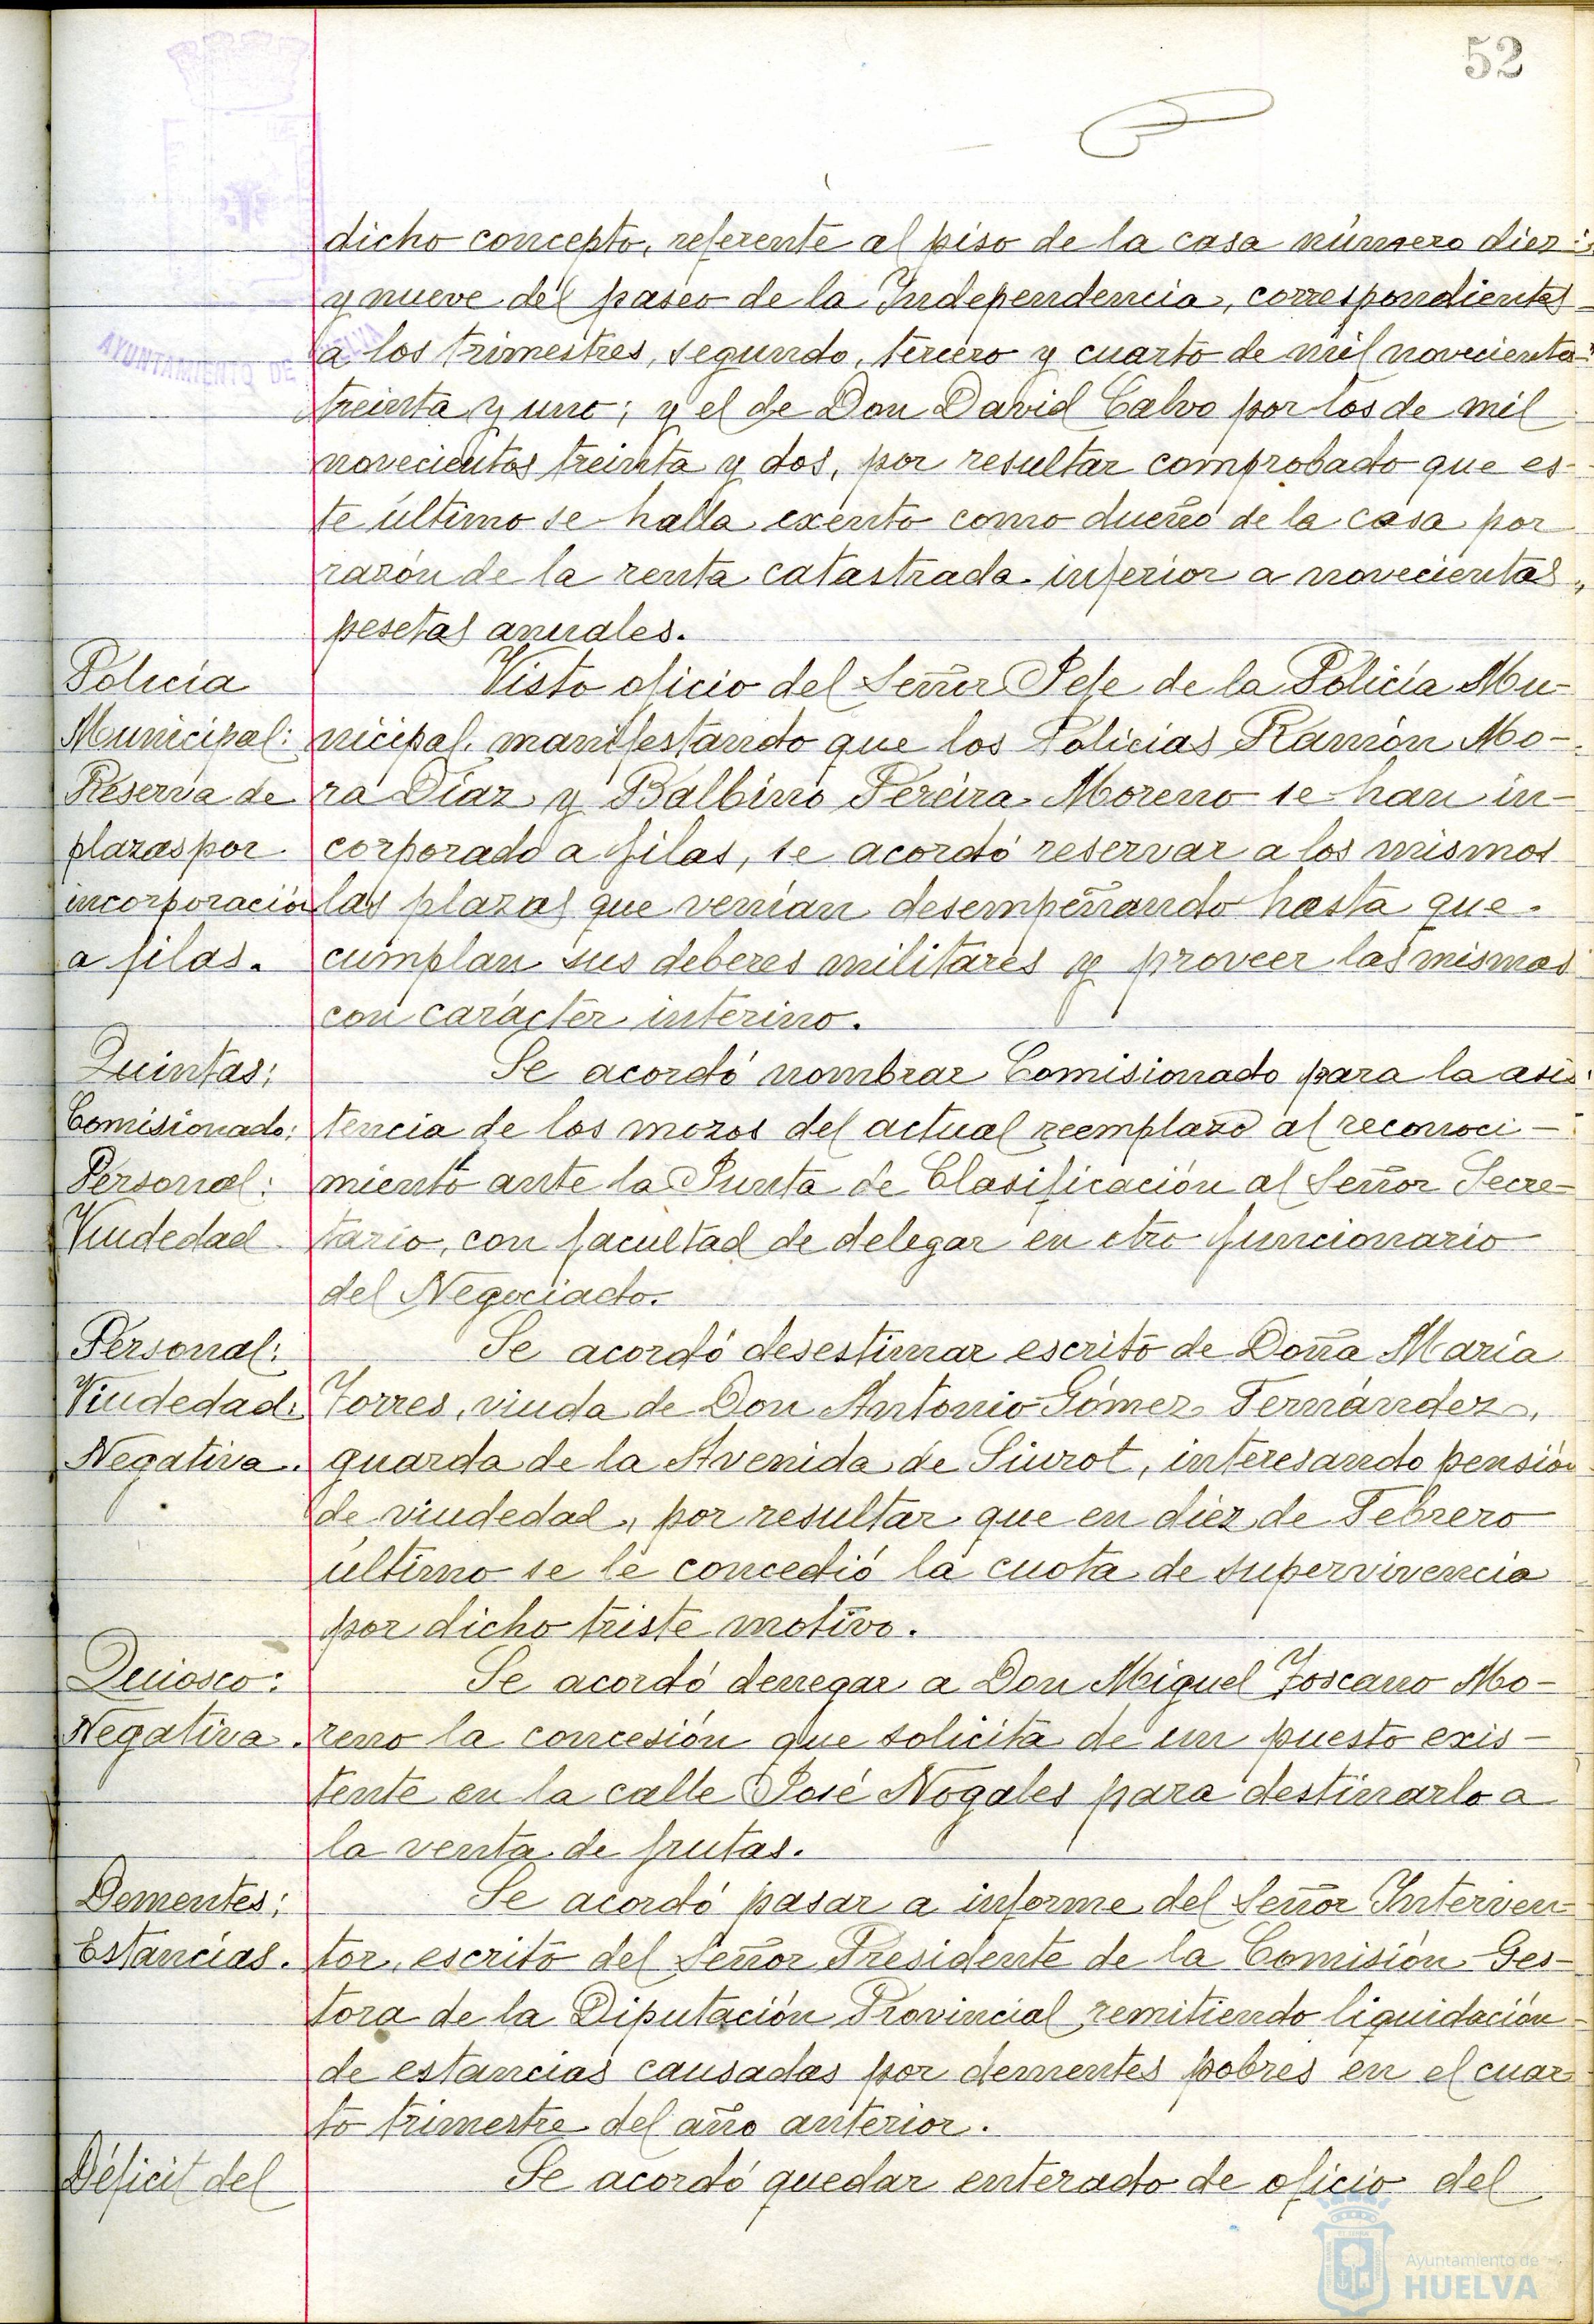 52
AYUNTAMIENTO DE HUELVA
dicho concepto, referente al piso de la casa número diez
y nueve del paseo de la Independencia, correspondientes
a los trimestres, segundo, tercero y cuarto de mil novecientos
treinta y uno; y el de Don David Calvo por los de mil
novecientos treinta y dos, por resultar comprobado que es-
te último se halla exento como dueño de la casa por
razón de la renta catastrada inferior a novecientas
pesetas anuales.
Policía
Municipal:
Reserva de
plazas por
incorporación
a filas.
Visto oficio del Señor Jefe de la Policía Mu-
nicipal, manifestando que los Policías Ramón Mo-
ra Díaz y Balbino Pereira Moreno se han in-
corporado a filas, se acordó reservar a los mismos
las plazas que venían desempeñando hasta que
cumplan sus deberes militares y proveer las mismas
con carácter interino.
Quintas;
Comisionado;
Personal:
Viudedad
Se acordó nombrar Comisionado para la asis-
tencia de los mozos del actual reemplazo al reconoci-
miento ante la Junta de Clasificación al Señor Secre-
tario, con facultad de delegar en otro funcionario
del Negociado.
Personal:
Viudedad:
Negativa.
Se acordó desestimar escrito de Doña María
Torres, viuda de Don Antonio Gómez Fernández,
guarda de la Avenida de Siurot, interesando pensión
de viudedad, por resultar que en diez de Febrero
último se le concedió la cuota de supervivencia
por dicho triste motivo.
Quiosco:
Negativa.
Se acordó denegar a Don Miguel Toscano Mo-
reno la concesión que solicita de un puesto exis-
tente en la calle José Nogales para destinarlo a
la venta de frutas.
Dementes;
Estancias.
Se acordó pasar a informe del Señor Interven-
tor, escrito del Señor Presidente de la Comisión Ges-
tora de la Diputación Provincial remitiendo liquidación
de estancias causadas por dementes pobres en el cuar-
to trimestre del año anterior.
Déficit del
Se acordó quedar enterado de oficio del
Ayuntamiento de
HUELVA